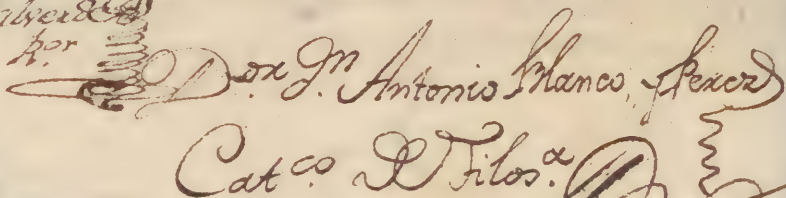 alverde
Ror.
Dor. Dn. Antonio Blanco, y Perez
Catco. De Filosa.